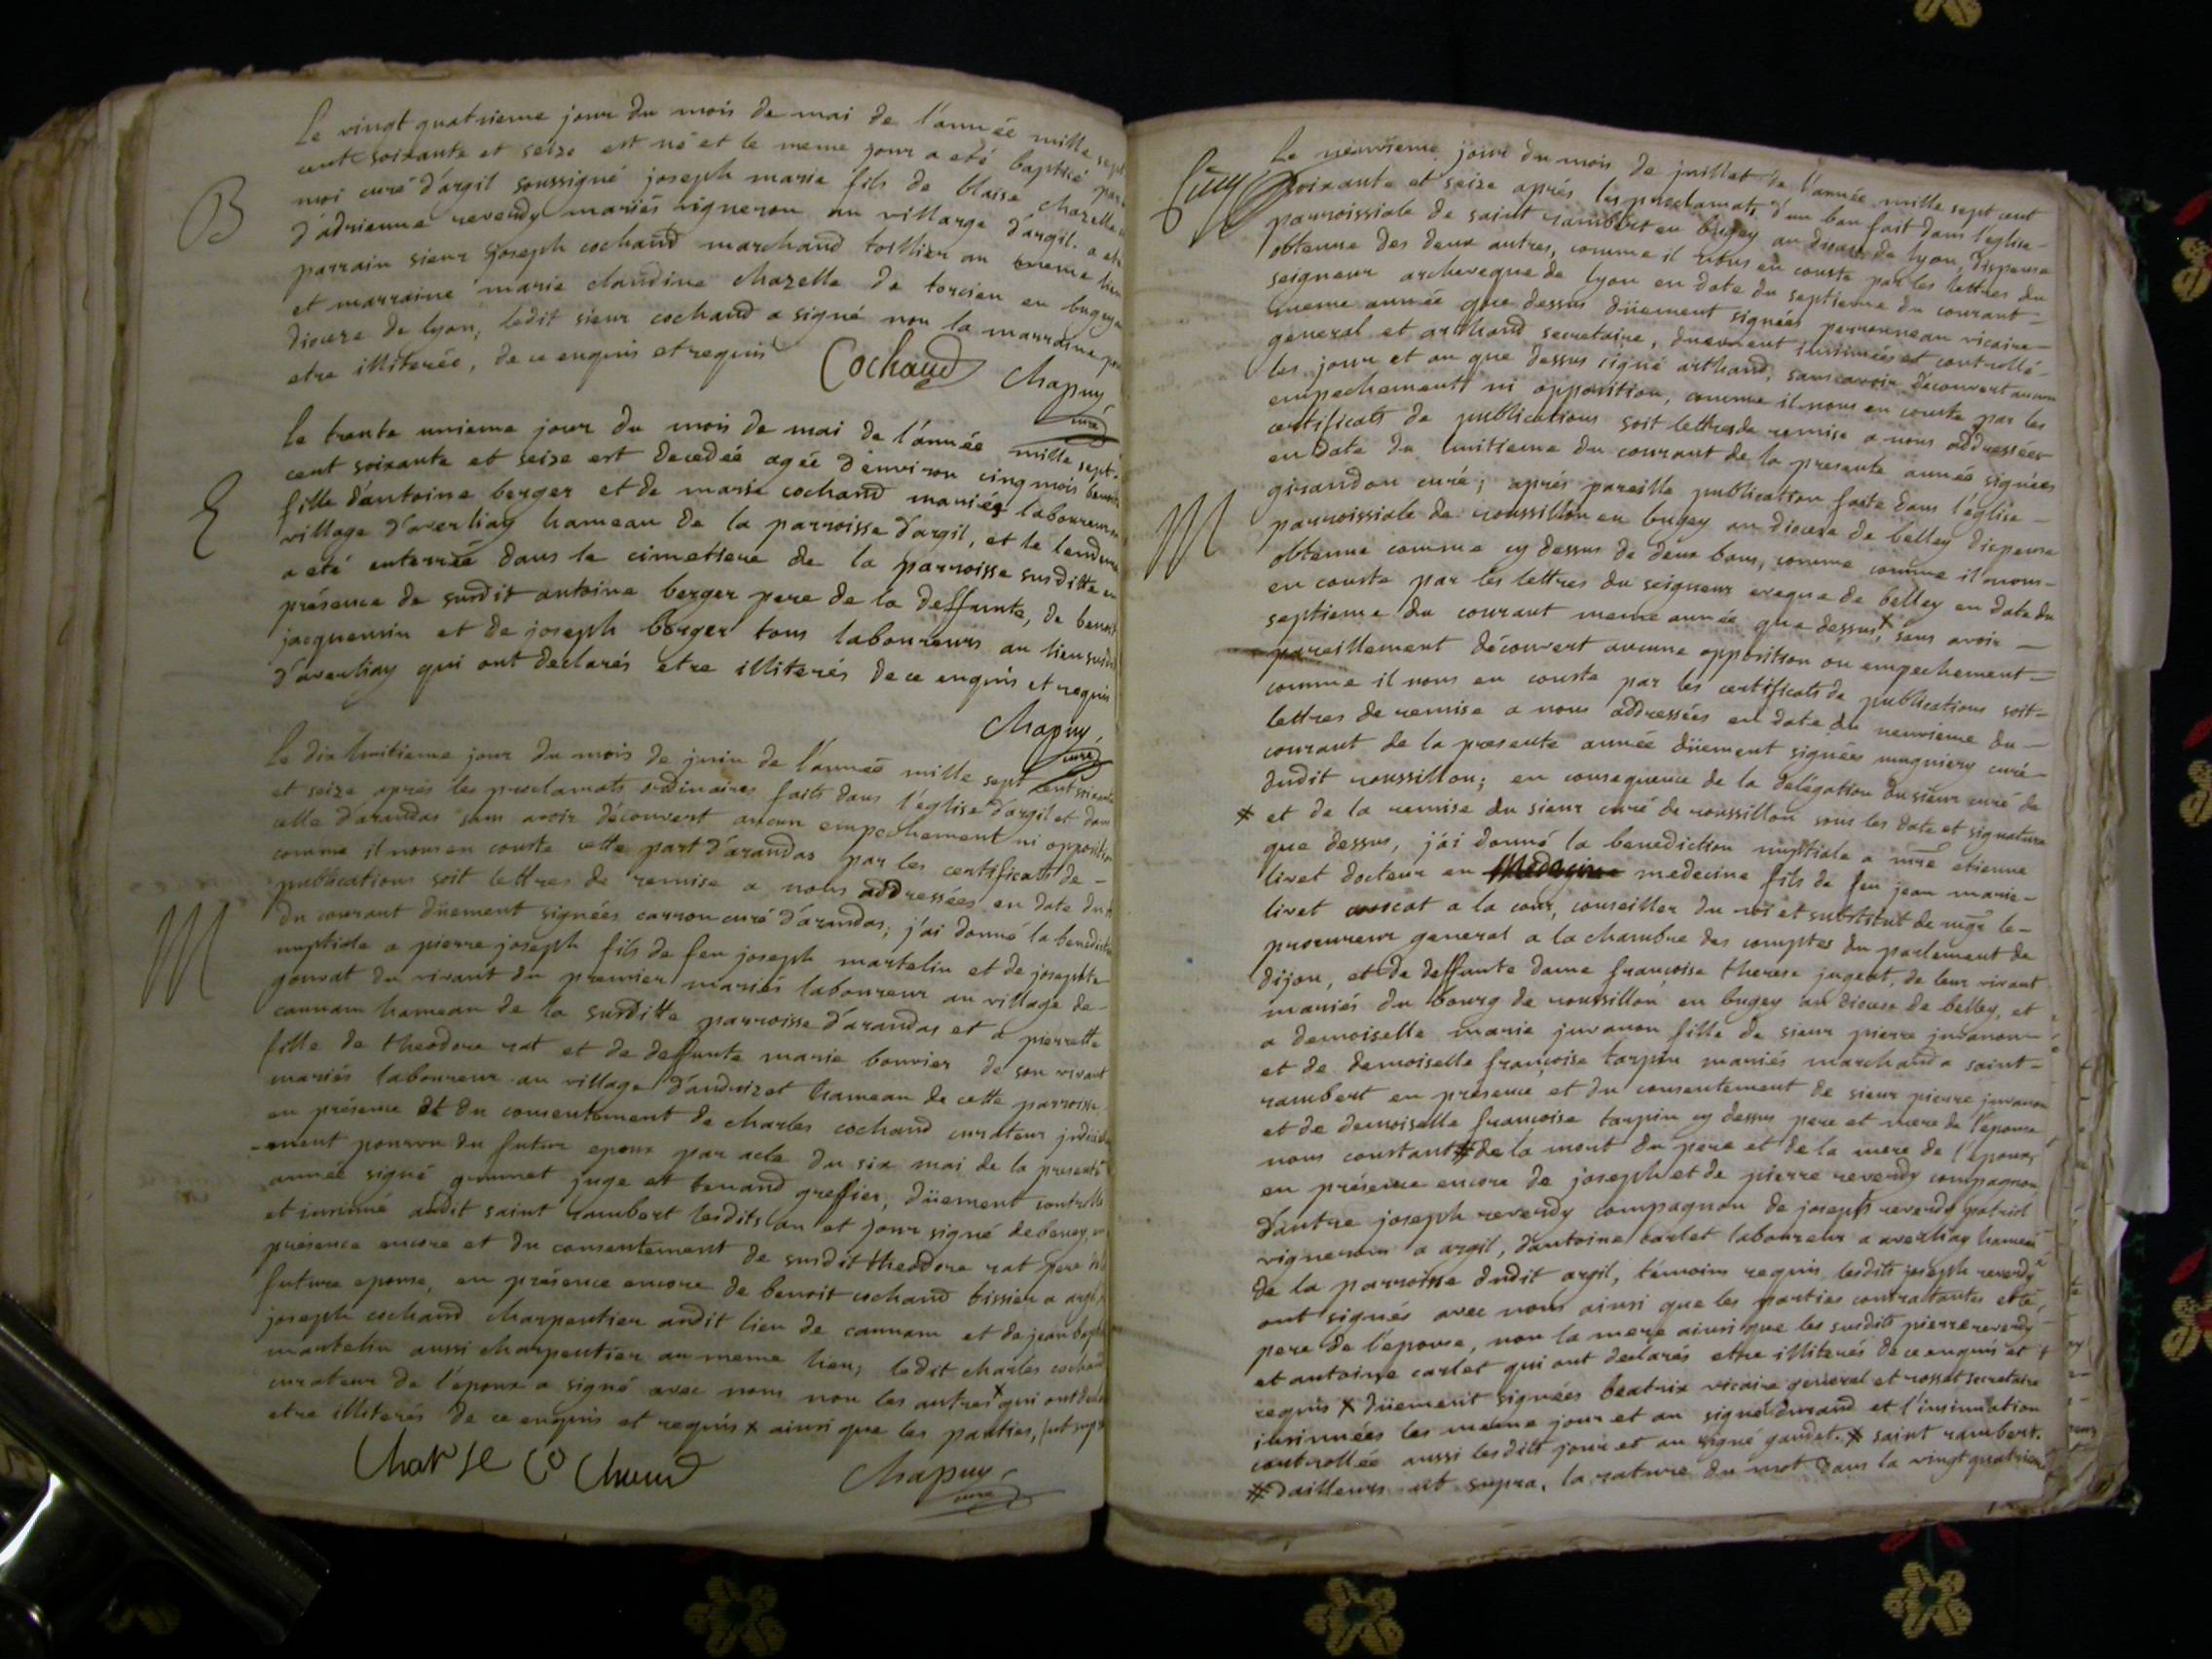 Le vingt quatrieme jour du mois de mai de l'année mille sept
cent soixante et seize est né et le meme jour a eté baptisé par
moi curé d'argil soussigné joseph marie fils de blaise chazelle
B
d'adrienne reverdy mariés vigneron au villarge d'argil. a eté
parrain sieur joseph cochand marchand toillier au meme lieu
et marraine marie claudine chazelle de torcieu en bugey
diocese de lyon; ledit sieur cochand a signé non la marraine pour
etre illiterée, de ce enquis et requis
Cochand
Chapuy,
curé
Le trente unieme jour du mois de mai de l'année mille sept-
cent soixante et seize est decedée agée d'environ cinq mois
E
fille d'antoine berger et de marie cochand mariés laboureurs
village d'averliay hameau de la parroisse d'argil, et le lendemain
a eté enterrée dans le cimetiere de la parroisse susditte en
présence de susdit antoine berger pere de la deffunte, de benoit
jacquemin et de joseph berger tous laboureurs au lieu susdit
d'averliay qui ont declarés etre illiterés de ce enquis et requis
Chapuy,
curé
Le dix huitieme jour du mois de juin de l'année mille sept cent soixante
et seize aprés les proclamats ordinaires faits dans l'église d'argil et dans
celle d'arandas sans avoir découvert aucun empechement ni opposition
comme il nous en couste cette part d'arandas par les certificats de-
publications soit lettres de remise a nous addressées en date du
M
du courant düement signées carron curé d'arandas; j'ai donné la benediction
nuptiale a pierre joseph fils de feu joseph martelin et de josephte
gouvat du vivant du premier mariés laboureur au village de-
cannam hameau de la susditte parroisse d'arandas et a pierrette
fille de theodore rat et de deffunte marie bouvier de son vivant
mariés laboureur au village hameau de cette parroisse
en présence et du consentement de charles cochand curateur
-ment pourvu du futur epoux par acte du six mai de la presente
année signé juge et greffier, düement controllé
et insinué audit saint rambert lesdits an et jour signé debeney, en
présence encore et du consentement de susdit theodore rat pere de la
future epouse, en présence encore de benoit cochand tissier a argil,
joseph cochand charpentier audit lieu de cannam et de jean baptiste
martelin aussi charpentier au meme lieu; ledit charles cochand
curateur de l'époux a signé avec nous non les autres x qui ont declarés
etre illiterés de ce enquis et requis x ainsi que les parties, ut supra
Charle Cochaud
Chapuy,
curé
Le neuvieme jour du mois de juillet de l'année mille sept cent
soixante et seize aprés les proclamats d'un ban fait dans l'église-
parroissiale de saint rambert en bugey au diocese de lyon, dispense
obtenue des deux autres, comme il nous en couste par les lettres du
seigneur archeveque de lyon en date du septieme du courant-
meme année que dessus düement signées vicaire-
general et arthaud secretaire, düement insinuées et controllé-
les jour et an que dessus signé arthaud, sans avoir découvert aucun
empechements ni opposition, comme il nous en couste par les
certificats de publications soit lettres de remise a nous addressées
en date du huitieme du courant de la presente année signées
girandon curé; aprés pareille publication faite dans l'église-
M
parroissiale de roussillon en bugey au diocese de belley dispense
obtenue comme cy dessus de deux bans, comme comme il nous-
en couste par les lettres du seigneur eveque de belley en date du
septieme du courant meme année que dessus, x sans avoir-
pareillement découvert aucune opposition ou empechement-
comme il nous en couste par les certificats de publications soit-
lettres de remise a nous addressées en date du neuvieme du-
courant de la presente année düement signées curé-
dudit roussillon; en consequence de la délégation du sieur curé de
x et de la remise du sieur curé de roussillon sous les date et signature
que dessus, j'ai donné la benediction nuptiale a mre etienne
livet docteur en medecine fils de feu jean marie-
livet avocat a la cour, conseiller du roi et substitut de mgr le-
procureur general a la chambre des comptes du parlement de
dijon, et de deffunte dame françoise therese jugent, de leur vivant
mariés du bourg de roussillon en bugey au diocese de belley, et
a demoiselle marie juvanon fille de sieur pierre juvanon-
et de demoiselle françoise tarpin mariés marchand a saint-
rambert en présence et du consentement de sieur pierre juvanon
et de demoiselle françoise tarpin cy dessus pere et mere de l'epouse
nous constant # de la mort du pere et de la mere de l'époux,
en présence encore de joseph et de pierre reverdy compagnon
d'autre joseph reverdy compagnon de joseph reverdy
vignerons a argil, d'antoine carlet laboureur a averliay hameau
de la parroisse dudit argil, témoins requis, lesdits joseph reverdy
ont signés avec nous ainsi que les parties contractantes et le
pere de l'épouse, non la mere ainsi que les susdits pierre reverdy
et antoine carlet qui ont declarés etre illiterés de ce enquis et
requis x düement signées beatrix vicaire general et rosset secretaire
insinuées les meme jour et an signé durand et l'insinuation
controllée aussi lesdits jour et an signé gaudet. x saint rambert.
# dailleurs ut supra, la rature du mot dans la vingt quatrieme